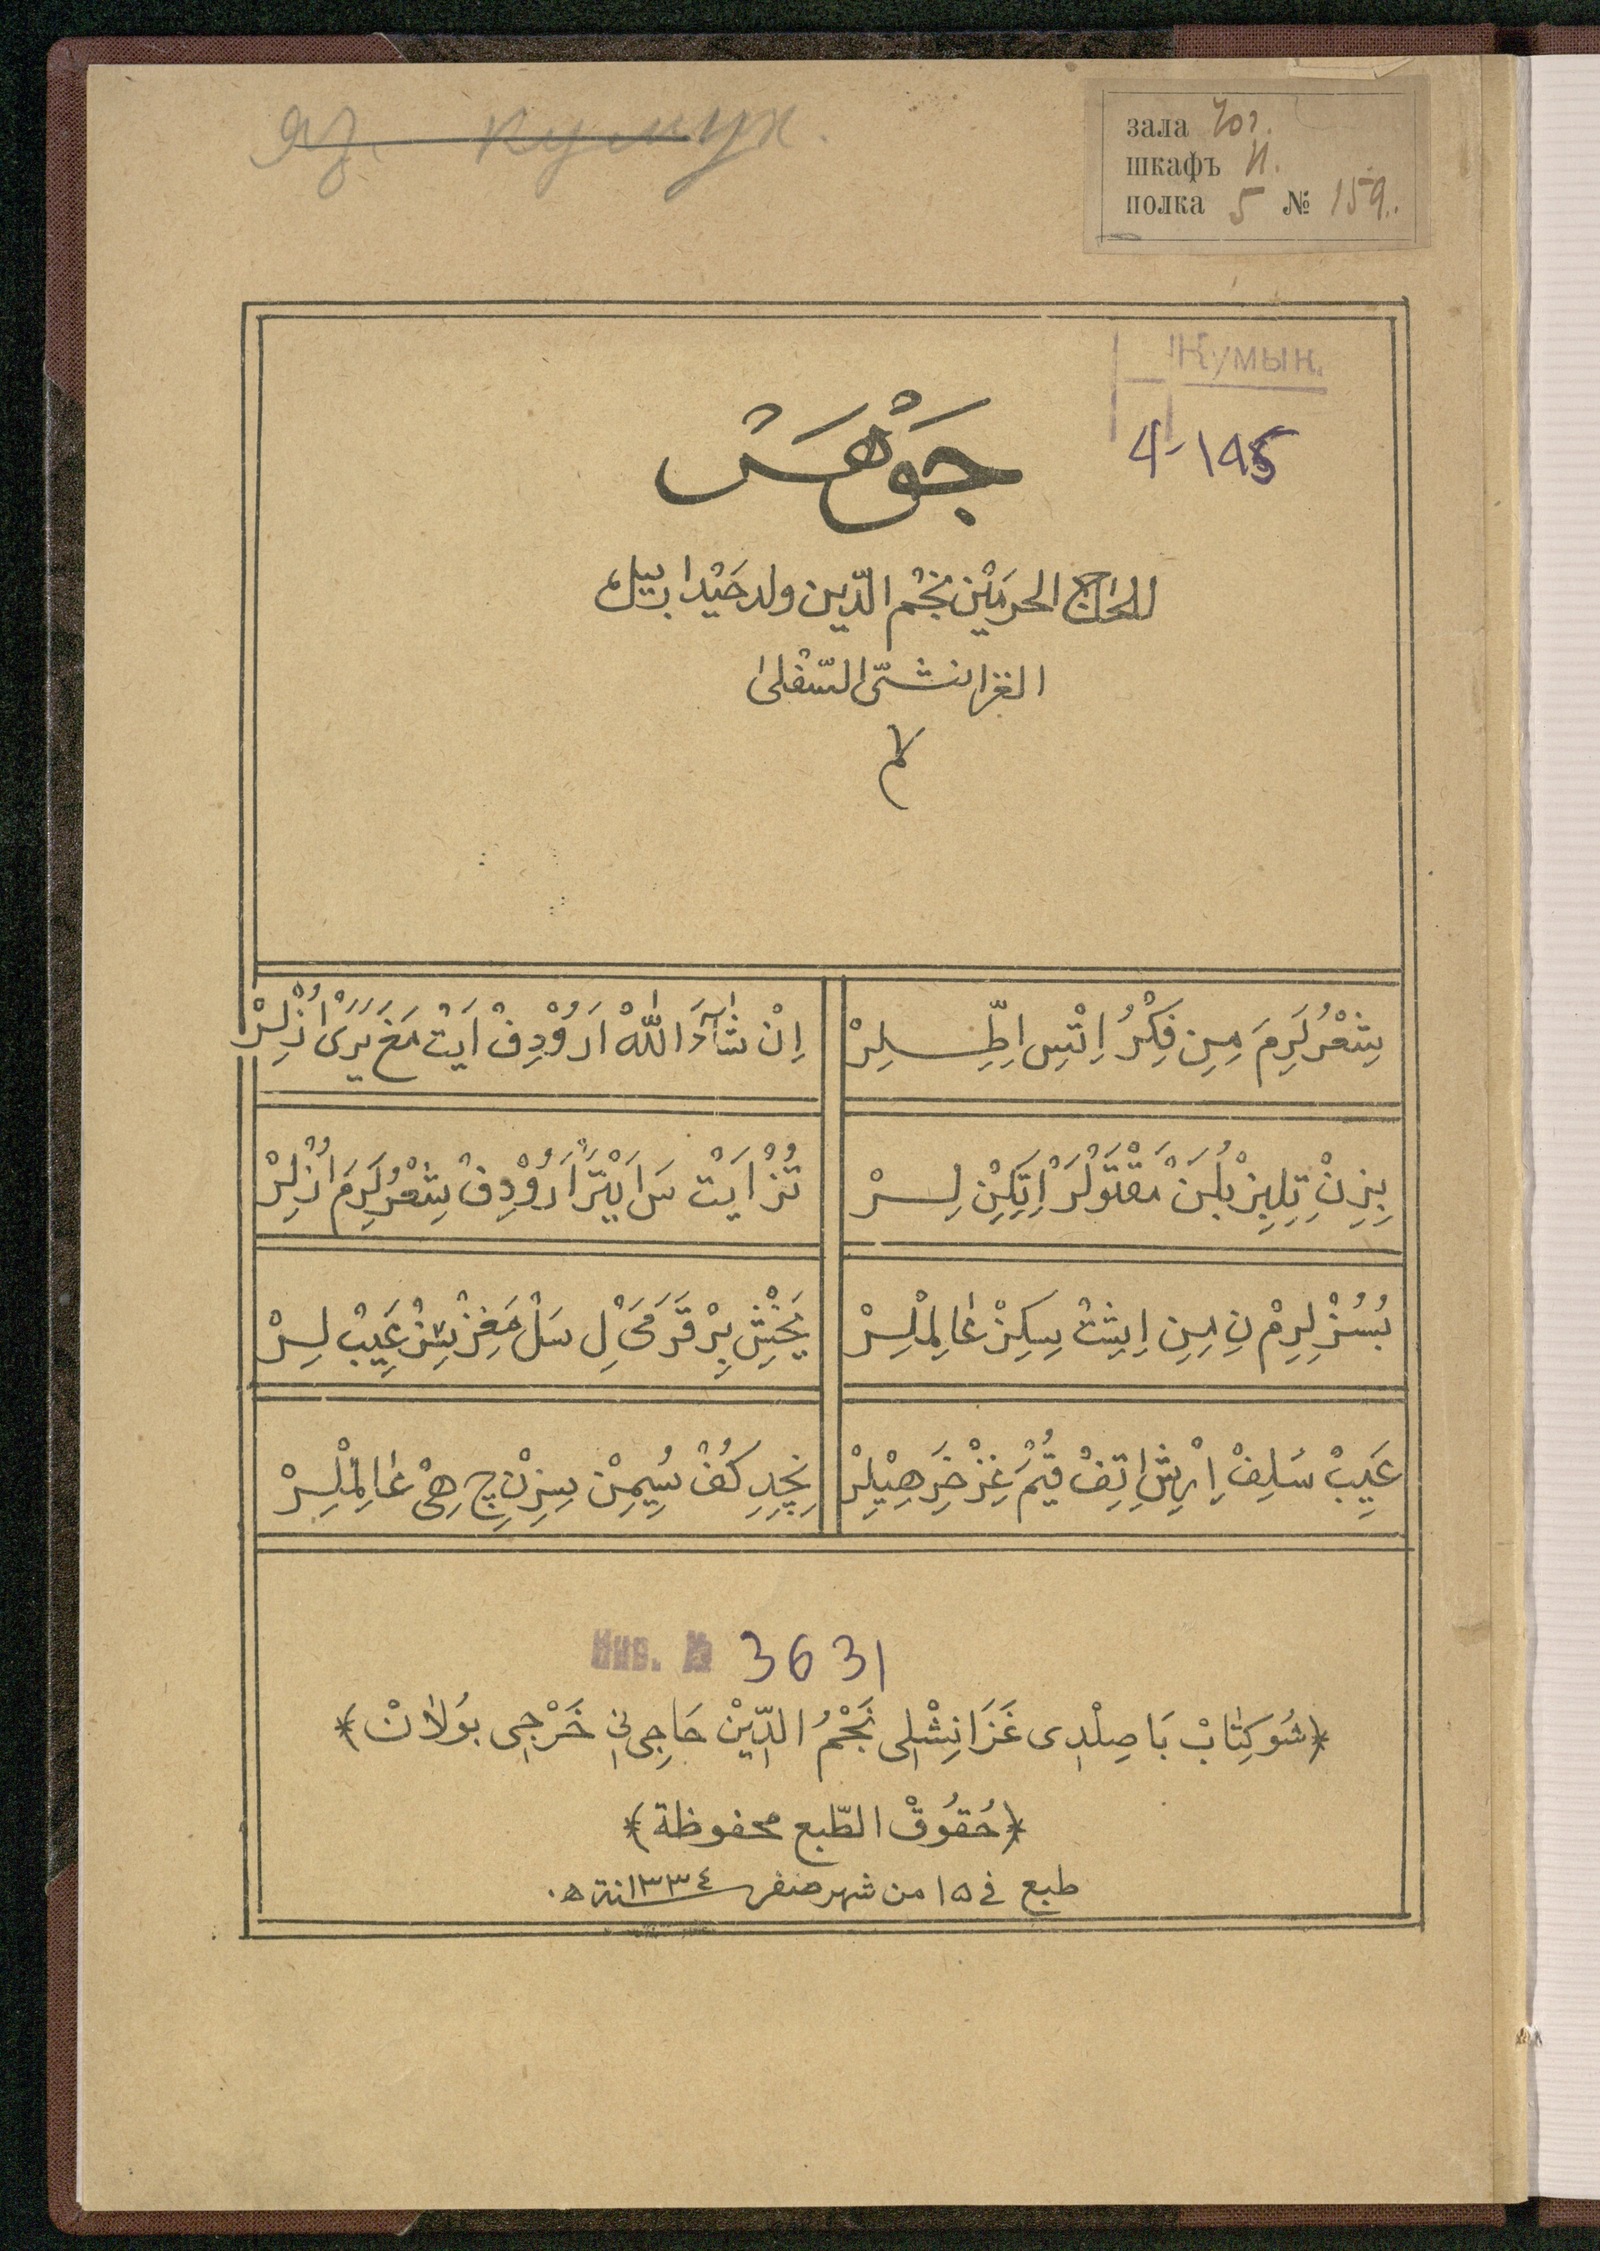 яз. кумук.
зала 103.
шкафъ И.
полка 5 № 159.
Кумык.
4-145
جَوْهَرْ
للحاج الحرمَيْن نَجْم الدّين ولد حَيْدا بيك
الغزانشىّ السّفلىٰ
شِعْرُ لَرِمَ مِينِ فِكْرُ اِتْسِ اِطِّــلِرْ
اِنْ شَآءَ اللّٰهْ اَرُوْدِفْ اَيْتمَغَ يَرَىْ اُزْلِرْ
بِزِنْ تِلِبِزْ بُلَنْ مَقْتَوْلَرْ اِتَكِنْ لِــرْ
تُزْ اَيْتسَ اَيْتَرْ اَرُوْدِفْ شِعْرُ لَرِمَ اُزْلِرْ
بُسُزْلِرِمْ نِ مِينِ اِيشِتْسِكِزْ عٰالِمْلِرْ
يَخْشِ بِرْ قَرَمَىْ لِ سَلْمَغِزْ سِزْ عَيِبْ لِرْ
عَيِبْ سَلِفْ اِرِيشْ اِتِفْ قُيْمَغِزْ خَرَهِيْلِرْ
نِچِدِ كُفْ سُيِيمِنْ سِزْنِچِ هِىْ عٰالِمْلِرْ
Инв. № 3631
﴿شُو كِتٰابْ بَاصِلْدِى غَزَانِشْلِى نَجْمُ الدِّيْن حَاجِى نِ خَرْجِى بُولَانْ﴾
﴿حُقُوقْ الطّبع محفوظة﴾
طبع فى ١٥ من شهر صفر سنة ١٣٣٤ ه.